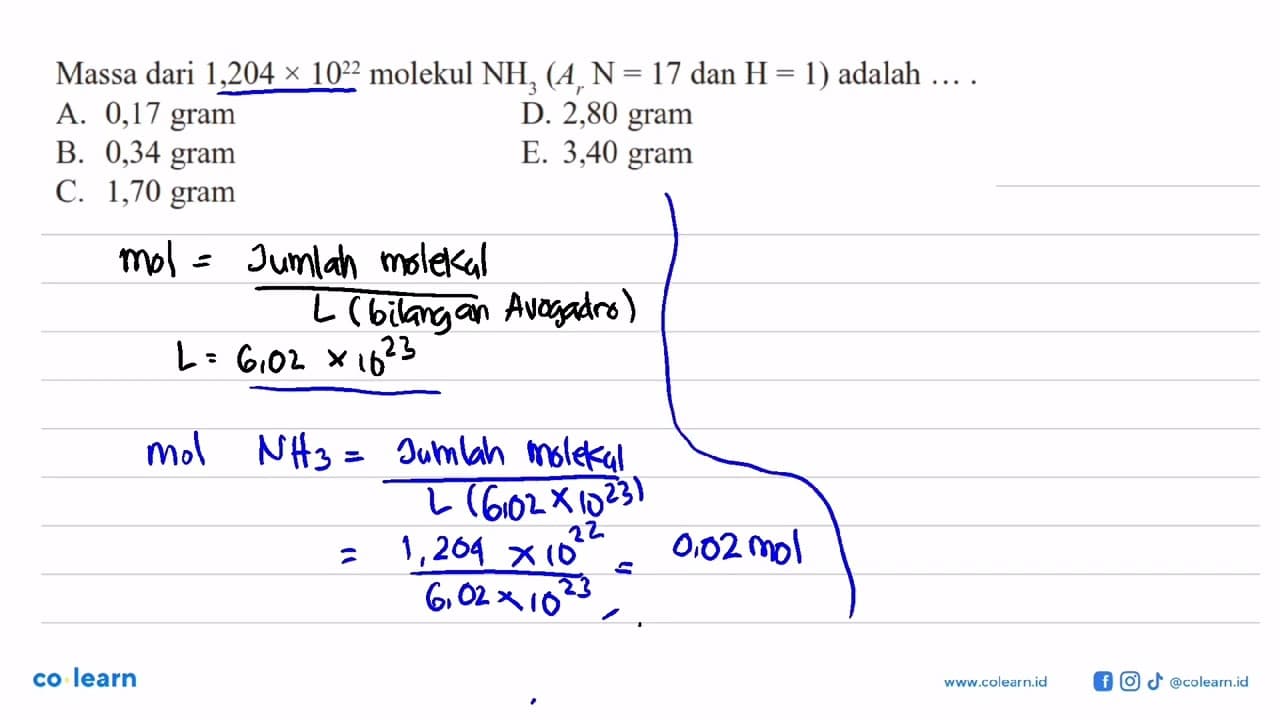 Massa dari 1,204 × 10²² molekul NH₃ (Aᵣ N = 17 dan H = 1) adalah ... .
A. 0,17 gram
B. 0,34 gram
C. 1,70 gram
D. 2,80 gram
E. 3,40 gram
mol = Jumlah molekul
L (bilangan Avogadro)
L = 6,02 × 10²³
mol NH₃ = Jumlah molekul
L (6,02 × 10²³)
= 1,204 × 10²² = 0,02 mol
6,02 × 10²³
co learn
www.colearn.id @colearn.id